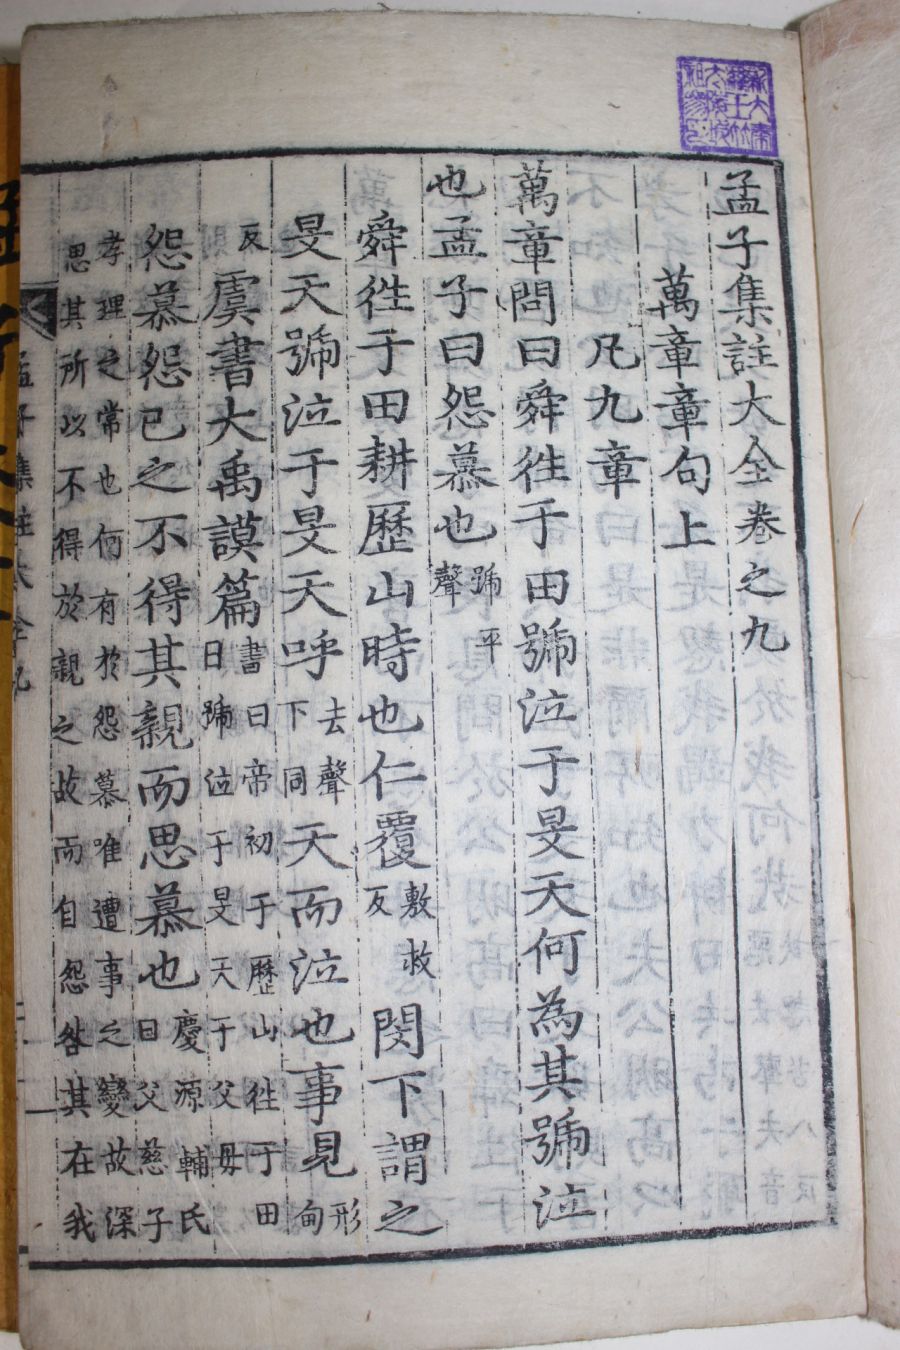 孟子集註大全卷之九
萬章章句上
凡九章
萬章問曰舜徃于田號泣于旻天何為其號泣
也孟子曰怨慕也號平聲
舜徃于田耕歷山時也仁覆敷救反閔下謂之
旻天號泣于旻天呼去聲下同天而泣也事見形甸
反虞書大禹謨篇書曰帝初于歷山徃于田日號泣于旻天于父母
怨慕怨已之不得其親而思慕也慶源輔氏曰父慈子
孝理之常也何有於怨慕唯遭事之變故深
思其所以不得於親之故而自怨咎其在我
孟子集註大全九